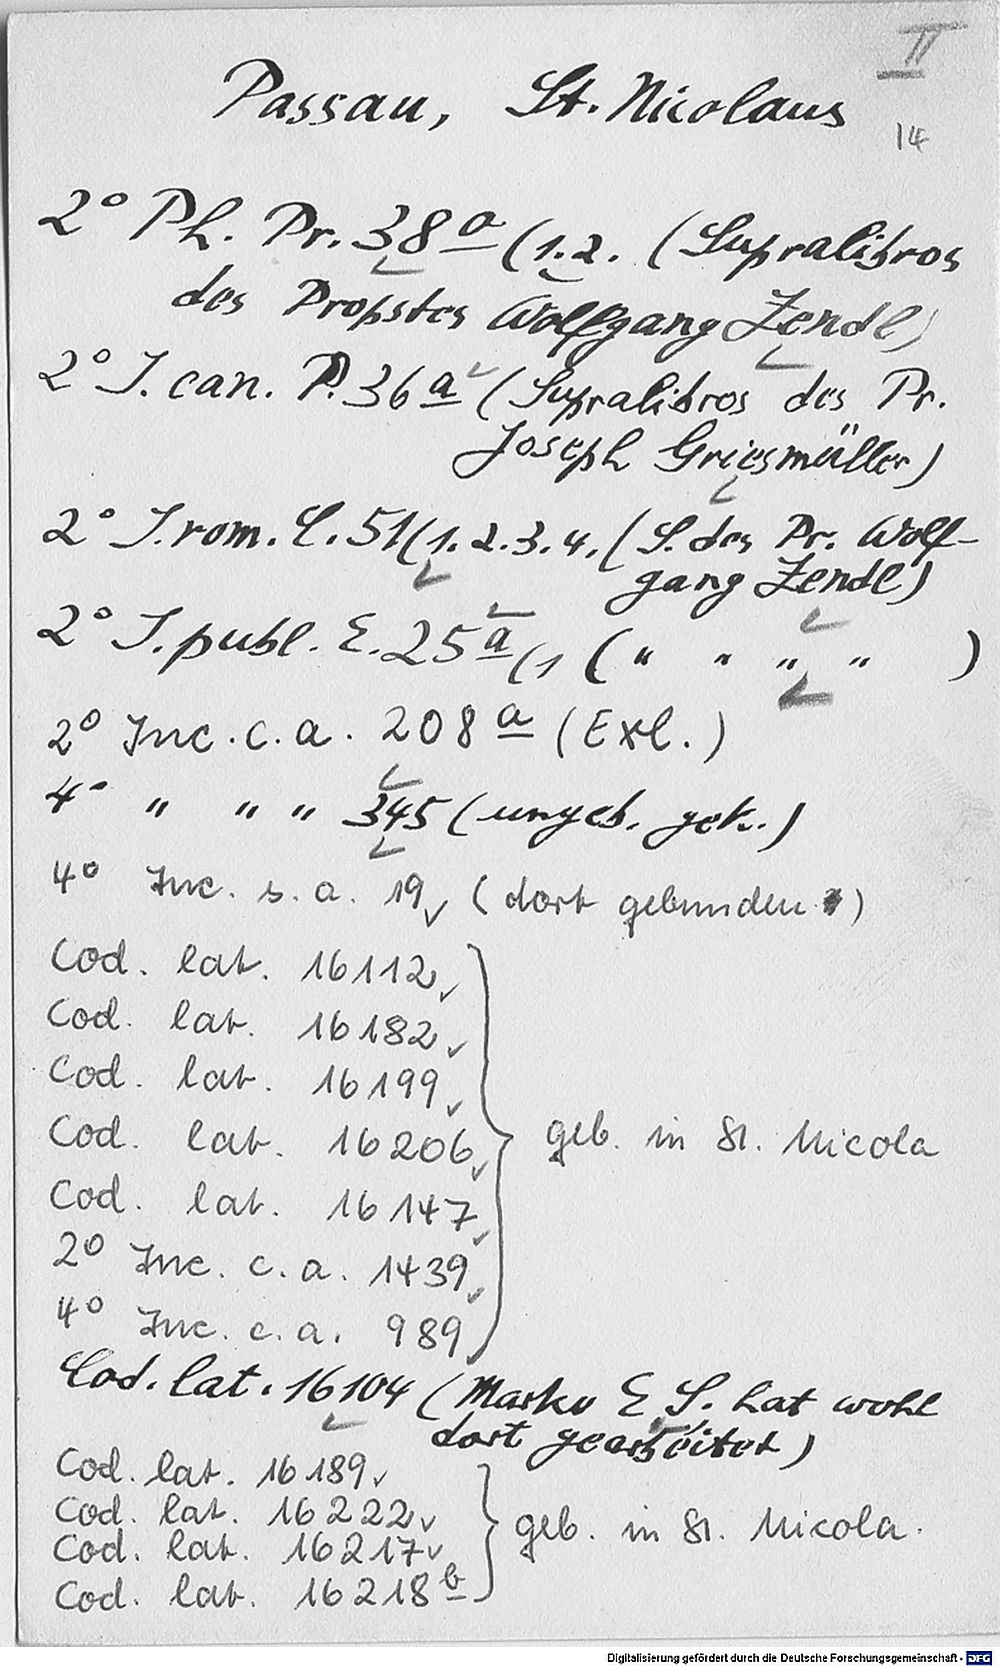 II
Passau, St. Nicolaus
14
2° Ph. Pr. 38 a (1.2. (Supralibros
des Propstes Wolfgang Zendl)
2° J. can. P. 36 a (Supralibros des Pr.
Joseph Griesmüller)
2° J. rom. C. 51 (1. 2. 3. 4. (S. des Pr. Wolf-
gang Zendl)
2° J. publ. E. 25 a (1 (" " " " )
2° Inc. c. a. 208 a (Exl.)
4° " " " 345 (ungeb. gek.)
4° Inc. s. a. 19 ✓ (dort gebunden)
Cod. lat. 16112 ✓
Cod. lat. 16182 ✓
Cod. lat. 16199 ✓
Cod. lat. 16206 ✓ } geb. in St. Nicola
Cod. lat. 16147 ✓
2° Inc. c. a. 1439 ✓
4° Inc. c. a. 989
Cod. lat. 16104 (E. S. hat wohl
dort gearbeitet)
Cod. lat. 16189 ✓
Cod. lat. 16222 ✓ } geb. in St. Nicola.
Cod. lat. 16217 ✓
Cod. lat. 16218 b
Digitalisierung gefördert durch die Deutsche Forschungsgemeinschaft - DFG